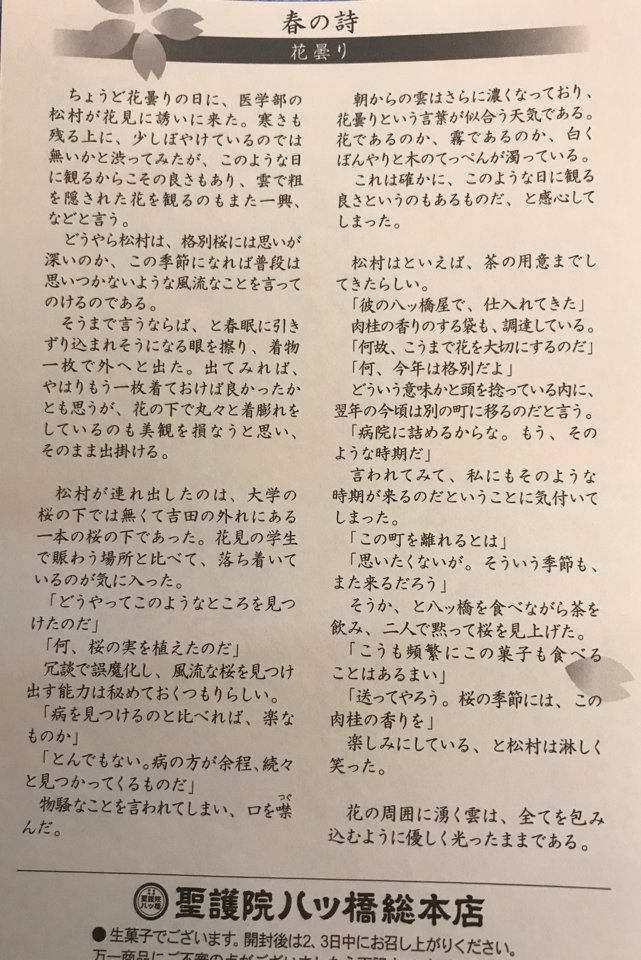 春の詩
花曇り
ちょうど花曇りの日に、医学部の
松村が花見に誘いに来た。寒さも
残る上に、少しぼやけているのでは
無いかと渋ってみたが、このような日
に観るからこその良さもあり、雲で粗
を隠された花を観るのもまた一興、
などと言う。
どうやら松村は、格別桜には思いが
深いのか、この季節になれば普段は
思いつかないような風流なことを言って
のけるのである。
そうまで言うならば、と春眠に引き
ずり込まれそうになる眼を擦り、着物
一枚で外へと出た。出てみれば、
やはりもう一枚着ておけば良かったか
とも思うが、花の下で丸々と着膨れを
しているのも美観を損なうと思い、
そのまま出掛ける。
松村が連れ出したのは、大学の
桜の下では無くて吉田の外れにある
一本の桜の下であった。花見の学生
で賑わう場所と比べて、落ち着いて
いるのが気に入った。
「どうやってこのようなところを見つ
けたのだ」
「何、桜の実を植えたのだ」
冗談で誤魔化し、風流な桜を見つけ
出す能力は秘めておくつもりらしい。
「病を見つけるのと比べれば、楽な
ものか」
「とんでもない。病の方が余程、続々
と見つかってくるものだ」
物騒なことを言われてしまい、口を噤
つぐ
んだ。
朝からの雲はさらに濃くなっており、
花曇りという言葉が似合う天気である。
花であるのか、霧であるのか、白く
ぼんやりと木のてっぺんが濁っている。
これは確かに、このような日に観る
良さというのもあるものだ、と感心して
しまった。
松村はといえば、茶の用意までし
てきたらしい。
「彼の八ッ橋屋で、仕入れてきた」
肉桂の香りのする袋も、調達している。
「何故、こうまで花を大切にするのだ」
「何、今年は格別だよ」
どういう意味かと頭を捻っている内に、
翌年の今頃は別の町に移るのだと言う。
「病院に詰めるからな。もう、その
ような時期だ」
言われてみて、私にもそのような
時期が来るのだということに気付いて
しまった。
「この町を離れるとは」
「思いたくないが。そういう季節も、
また来るだろう」
そうか、と八ッ橋を食べながら茶を
飲み、二人で黙って桜を見上げた。
「こうも頻繁にこの菓子も食べる
ことはあるまい」
「送ってやろう。桜の季節には、この
肉桂の香りを」
楽しみにしている、と松村は淋しく
笑った。
花の周囲に湧く雲は、全てを包み
込むように優しく光ったままである。
聖護院八ッ橋
聖護院八ッ橋総本店
●生菓子でございます。開封後は2、3日中にお召し上がりください。